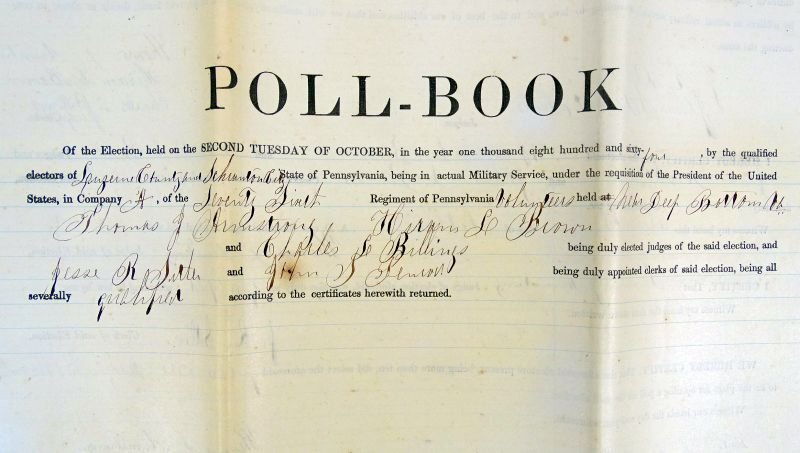 POLL-BOOK
Of the Election, held on the SECOND TUESDAY OF OCTOBER, in the year one thousand eight hundred and sixty-four, by the qualified
electors of Luzerne County and Schranton City State of Pennsylvania, being in actual Military Service, under the requisition of the President of the United
States, in Company A, of the Seventy First Regiment of Pennsylvania Volunteers held at Near Deep Bottom Va
Thomas J Armstrong Hiram L Brown
and Charles Billings being duly elected judges of the said election, and
Jesse R and John S being duly appointed clerks of said election, being all
severally qualified according to the certificates herewith returned.